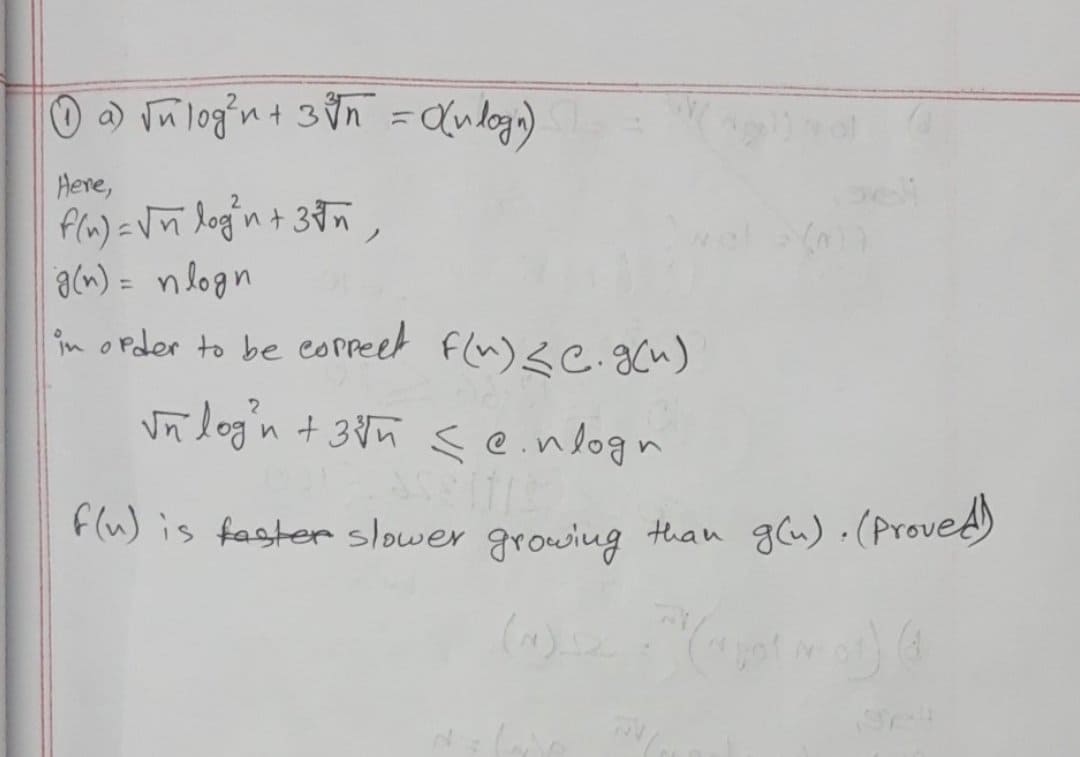 ① a) √n log²n + 3∛n = O(n logn)
Here,
f(n) = √n log²n + 3∛n ,
g(n) = n logn
in order to be correct f(n) ≤ c. g(n)
√n log²n + 3∛n ≤ c. n logn
f(n) is faster slower growing than g(n) . (Proved)